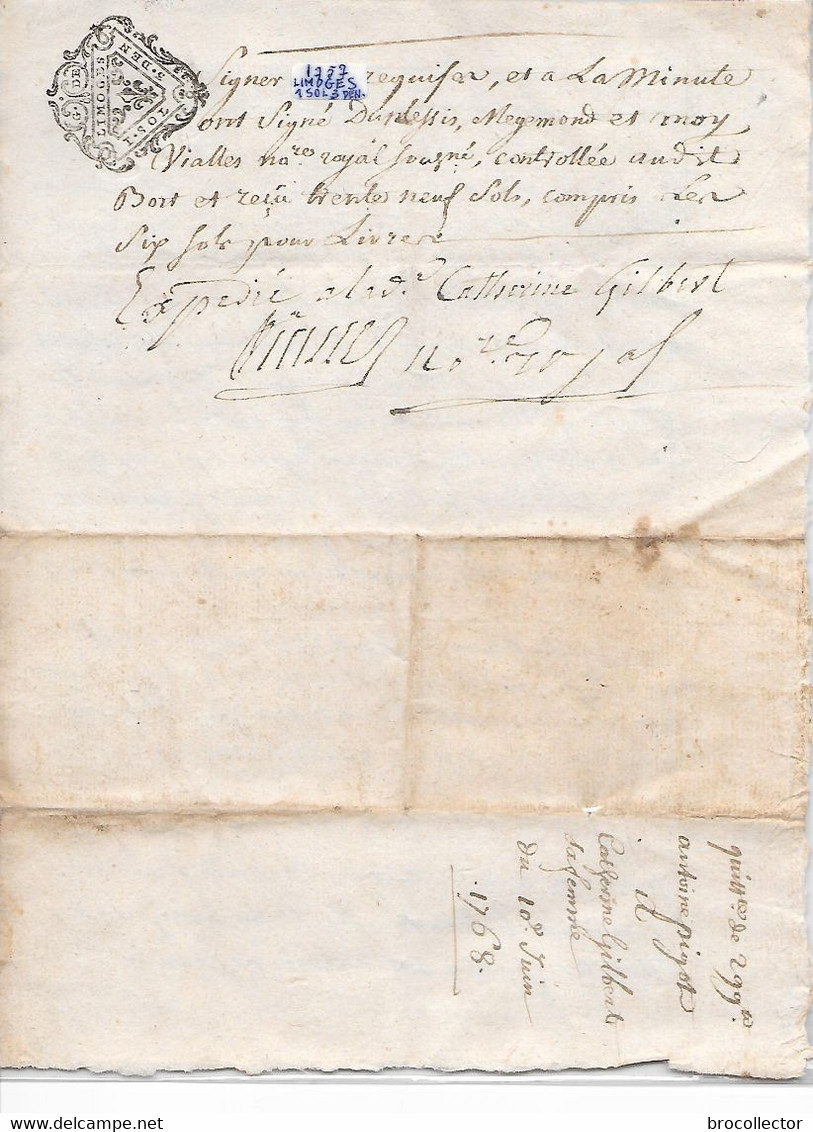 G. DE LIMOGES
I. SOL
3. DEN
1757
LIMOGES
1 SOL 3 DEN.
Signer requiser, et a La Minute
ont Signé Duplessis, Megemond et moy
Vialles no.re royal sousgné, controllée audit
Bort et reçu trente neuf Sols, compris Les
Six sols pour Livres
Expedié a lad.e Catherine Gilbert
Vialles no.re royal
quitt.ce de 299.tt
antoine pigot
a
Catherine Gilbert
sa femme
du 10.e Juin
.1768.
brocollector